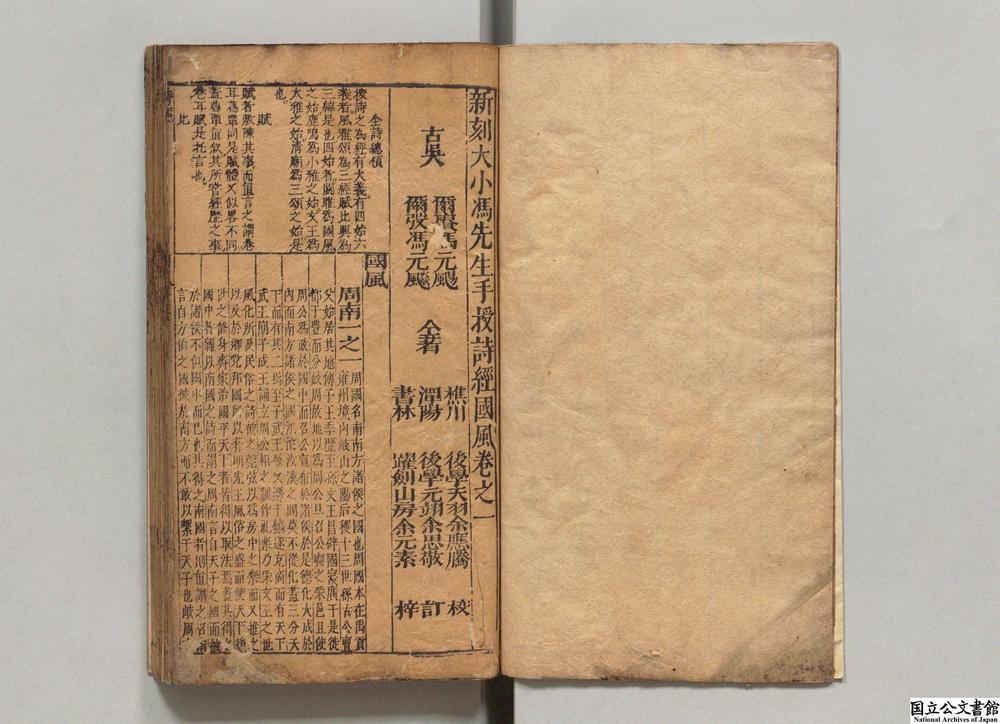 新刻大小馮先生手授詩經國風卷之一
古吳
爾賡馮元颺
爾弢馮元飇
仝著
樵川 後學天羽余應騰 校
潭陽 後學元翊余思敬 訂
書林 躍劍山房余元素 梓
國風
周南一之一
周國名南南方諸侯之國也周國本在禹貢
雍州境內岐山之陽后稷十三世孫古公亶
父始居其地傳子王季歷至孫文王昌辟國寖廣于是徙
都于豐而分岐周故地以爲周公旦召公奭之采邑且使
周公爲政於國中而召公宣布於諸侯於是德化大成於
內而南方諸侯之國江沱汝漢之間莫不從化蓋三分天
下而有其二焉至子武王發又遷于鎬遂克商而有天下
武王崩子成王誦立周公相之制作礼樂乃采文王之世
風化所及民俗之詩被之筦弦以爲房中之樂而又推之
以及於鄉党邦國所以著明先王風俗之盛而使天下後
世之修身齊家治國平天下者皆得以取法焉蓋其得之
國中者雜以南國之詩而謂之周南言自天子之國而被
於諸侯不但國中而已也其得之南國者則直謂之召南
言自方伯之國被於南方而不敢以繫于天子也岐周
全詩總領
按詩之爲經有大義有四始六
義者風雅頌爲三經賦比興爲
三緯是也四始者關雎爲國風
之始鹿鳴爲小雅之始文王爲
大雅之始清廟爲三頌之始是
也
賦
賦者敷陳其事而直言之謂卷
耳葛覃同是賦體又似畧不同
蓋葛覃直敘其所嘗經歷之事
卷耳賦是托言也
比
国立公文書館
National Archives of Japan